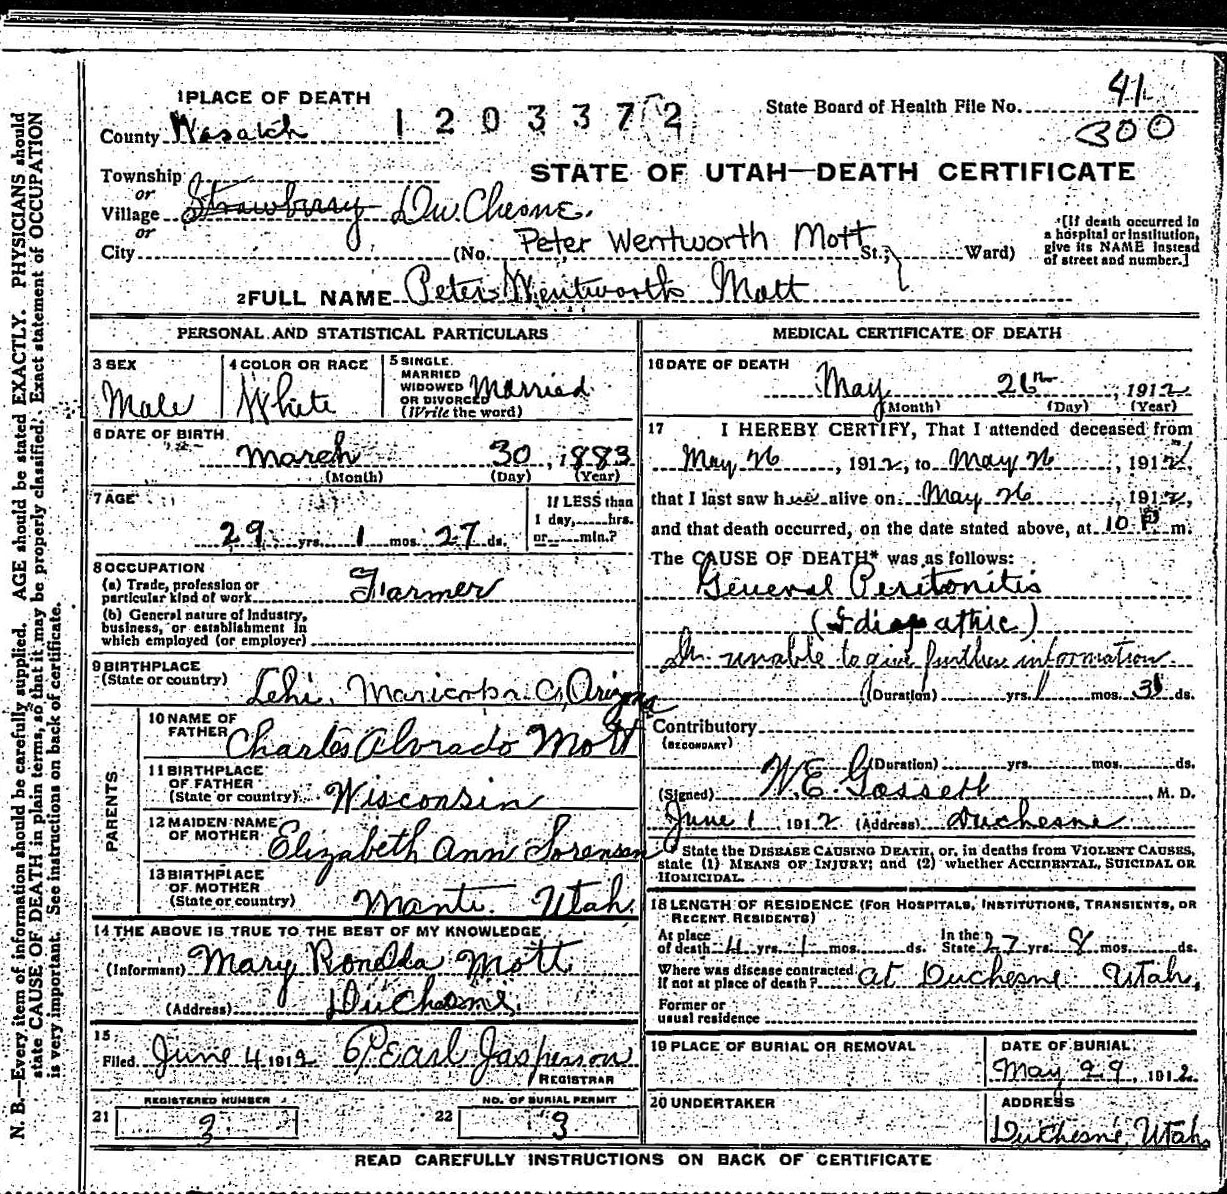 1 PLACE OF DEATH
County Wasatch
1203372
State Board of Health File No. 41
300
STATE OF UTAH—DEATH CERTIFICATE
Township
or
Village Strawberry DuChesne.
or
City (No. Peter Wentworth Mott St.; Ward)
*[If death occurred in a hospital or institution, give its NAME instead of street and number.]
2 FULL NAME Peter Wentworth Mott
PERSONAL AND STATISTICAL PARTICULARS
3 SEX
Male
4 COLOR OR RACE
White
5 SINGLE.
MARRIED
WIDOWED
OR DIVORCED
(Write the word)
Married
6 DATE OF BIRTH
March 30, 1883
(Month) (Day) (Year)
7 AGE
29 yrs. 1 mos. 27 ds.
If LESS than
1 day, hrs.
or min.?
8 OCCUPATION
(a) Trade, profession or
particular kind of work Farmer
(b) General nature of industry,
business, or establishment in
which employed (or employer)
9 BIRTHPLACE
(State or country) Lehi, Maricopa Co, Arizona
PARENTS
10 NAME OF
FATHER Charles Alvrado Mott
11 BIRTHPLACE
OF FATHER
(State or country) Wisconsin
12 MAIDEN NAME
OF MOTHER Elizabeth Ann Sorensen
13 BIRTHPLACE
OF MOTHER
(State or country) Manti. Utah.
14 THE ABOVE IS TRUE TO THE BEST OF MY KNOWLEDGE
(Informant) Mary Mott
(Address) DuChesne.
15
Filed June 4 1912 Pearl Jasperson
REGISTRAR
REGISTERED NUMBER
21 3
NO. OF BURIAL PERMIT
22 3
MEDICAL CERTIFICATE OF DEATH
16 DATE OF DEATH
May 26th, 1912
(Month) (Day) (Year)
17 I HEREBY CERTIFY, That I attended deceased from
May 26, 1912, to May 26, 1912
that I last saw him alive on May 26, 1912,
and that death occurred, on the date stated above, at 10 P m.
The CAUSE OF DEATH* was as follows:
General Peritonitis
(Idiopathic)
Dr. unable to give further information
(Duration) yrs. mos. 3 ds.
Contributory
(SECONDARY)
(Duration) yrs. mos. ds.
(Signed) W.E. Gossett, M. D.
June 1 1912 (Address) Duchesne
* State the DISEASE CAUSING DEATH, or, in deaths from VIOLENT CAUSES,
state (1) MEANS OF INJURY; and (2) whether ACCIDENTAL, SUICIDAL OR
HOMICIDAL.
18 LENGTH OF RESIDENCE (FOR HOSPITALS, INSTITUTIONS, TRANSIENTS, OR
RECENT RESIDENTS)
At place
of death 4 yrs. 1 mos. ds.
In the
State 27 yrs. 8 mos. ds.
Where was disease contracted
If not at place of death? at Duchesne Utah,
Former or
usual residence
19 PLACE OF BURIAL OR REMOVAL
DATE OF BURIAL
May 29, 1912
20 UNDERTAKER
ADDRESS
Duchesne, Utah
READ CAREFULLY INSTRUCTIONS ON BACK OF CERTIFICATE
N. B.—Every item of information should be carefully supplied. AGE should be stated EXACTLY. PHYSICIANS should
state CAUSE OF DEATH in plain terms, so that it may be properly classified. Exact statement of OCCUPATION
is very important. See instructions on back of certificate.